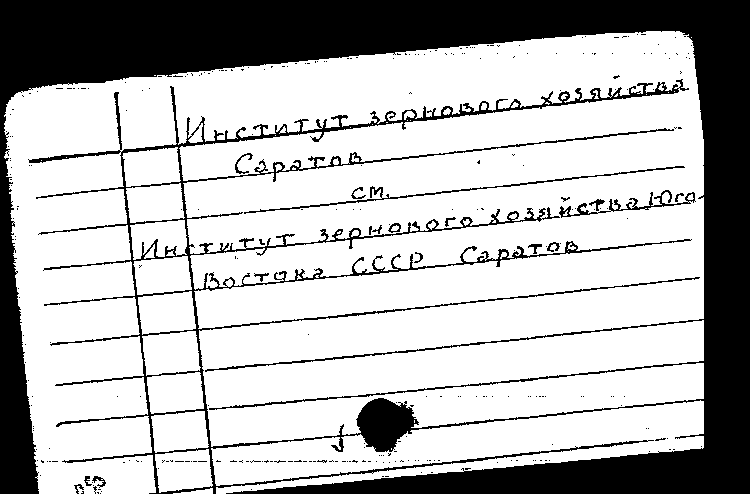 Институт зернового хозяйства
Саратов
см.
Институт зернового хозяйства Юго-
Востока СССР Саратов